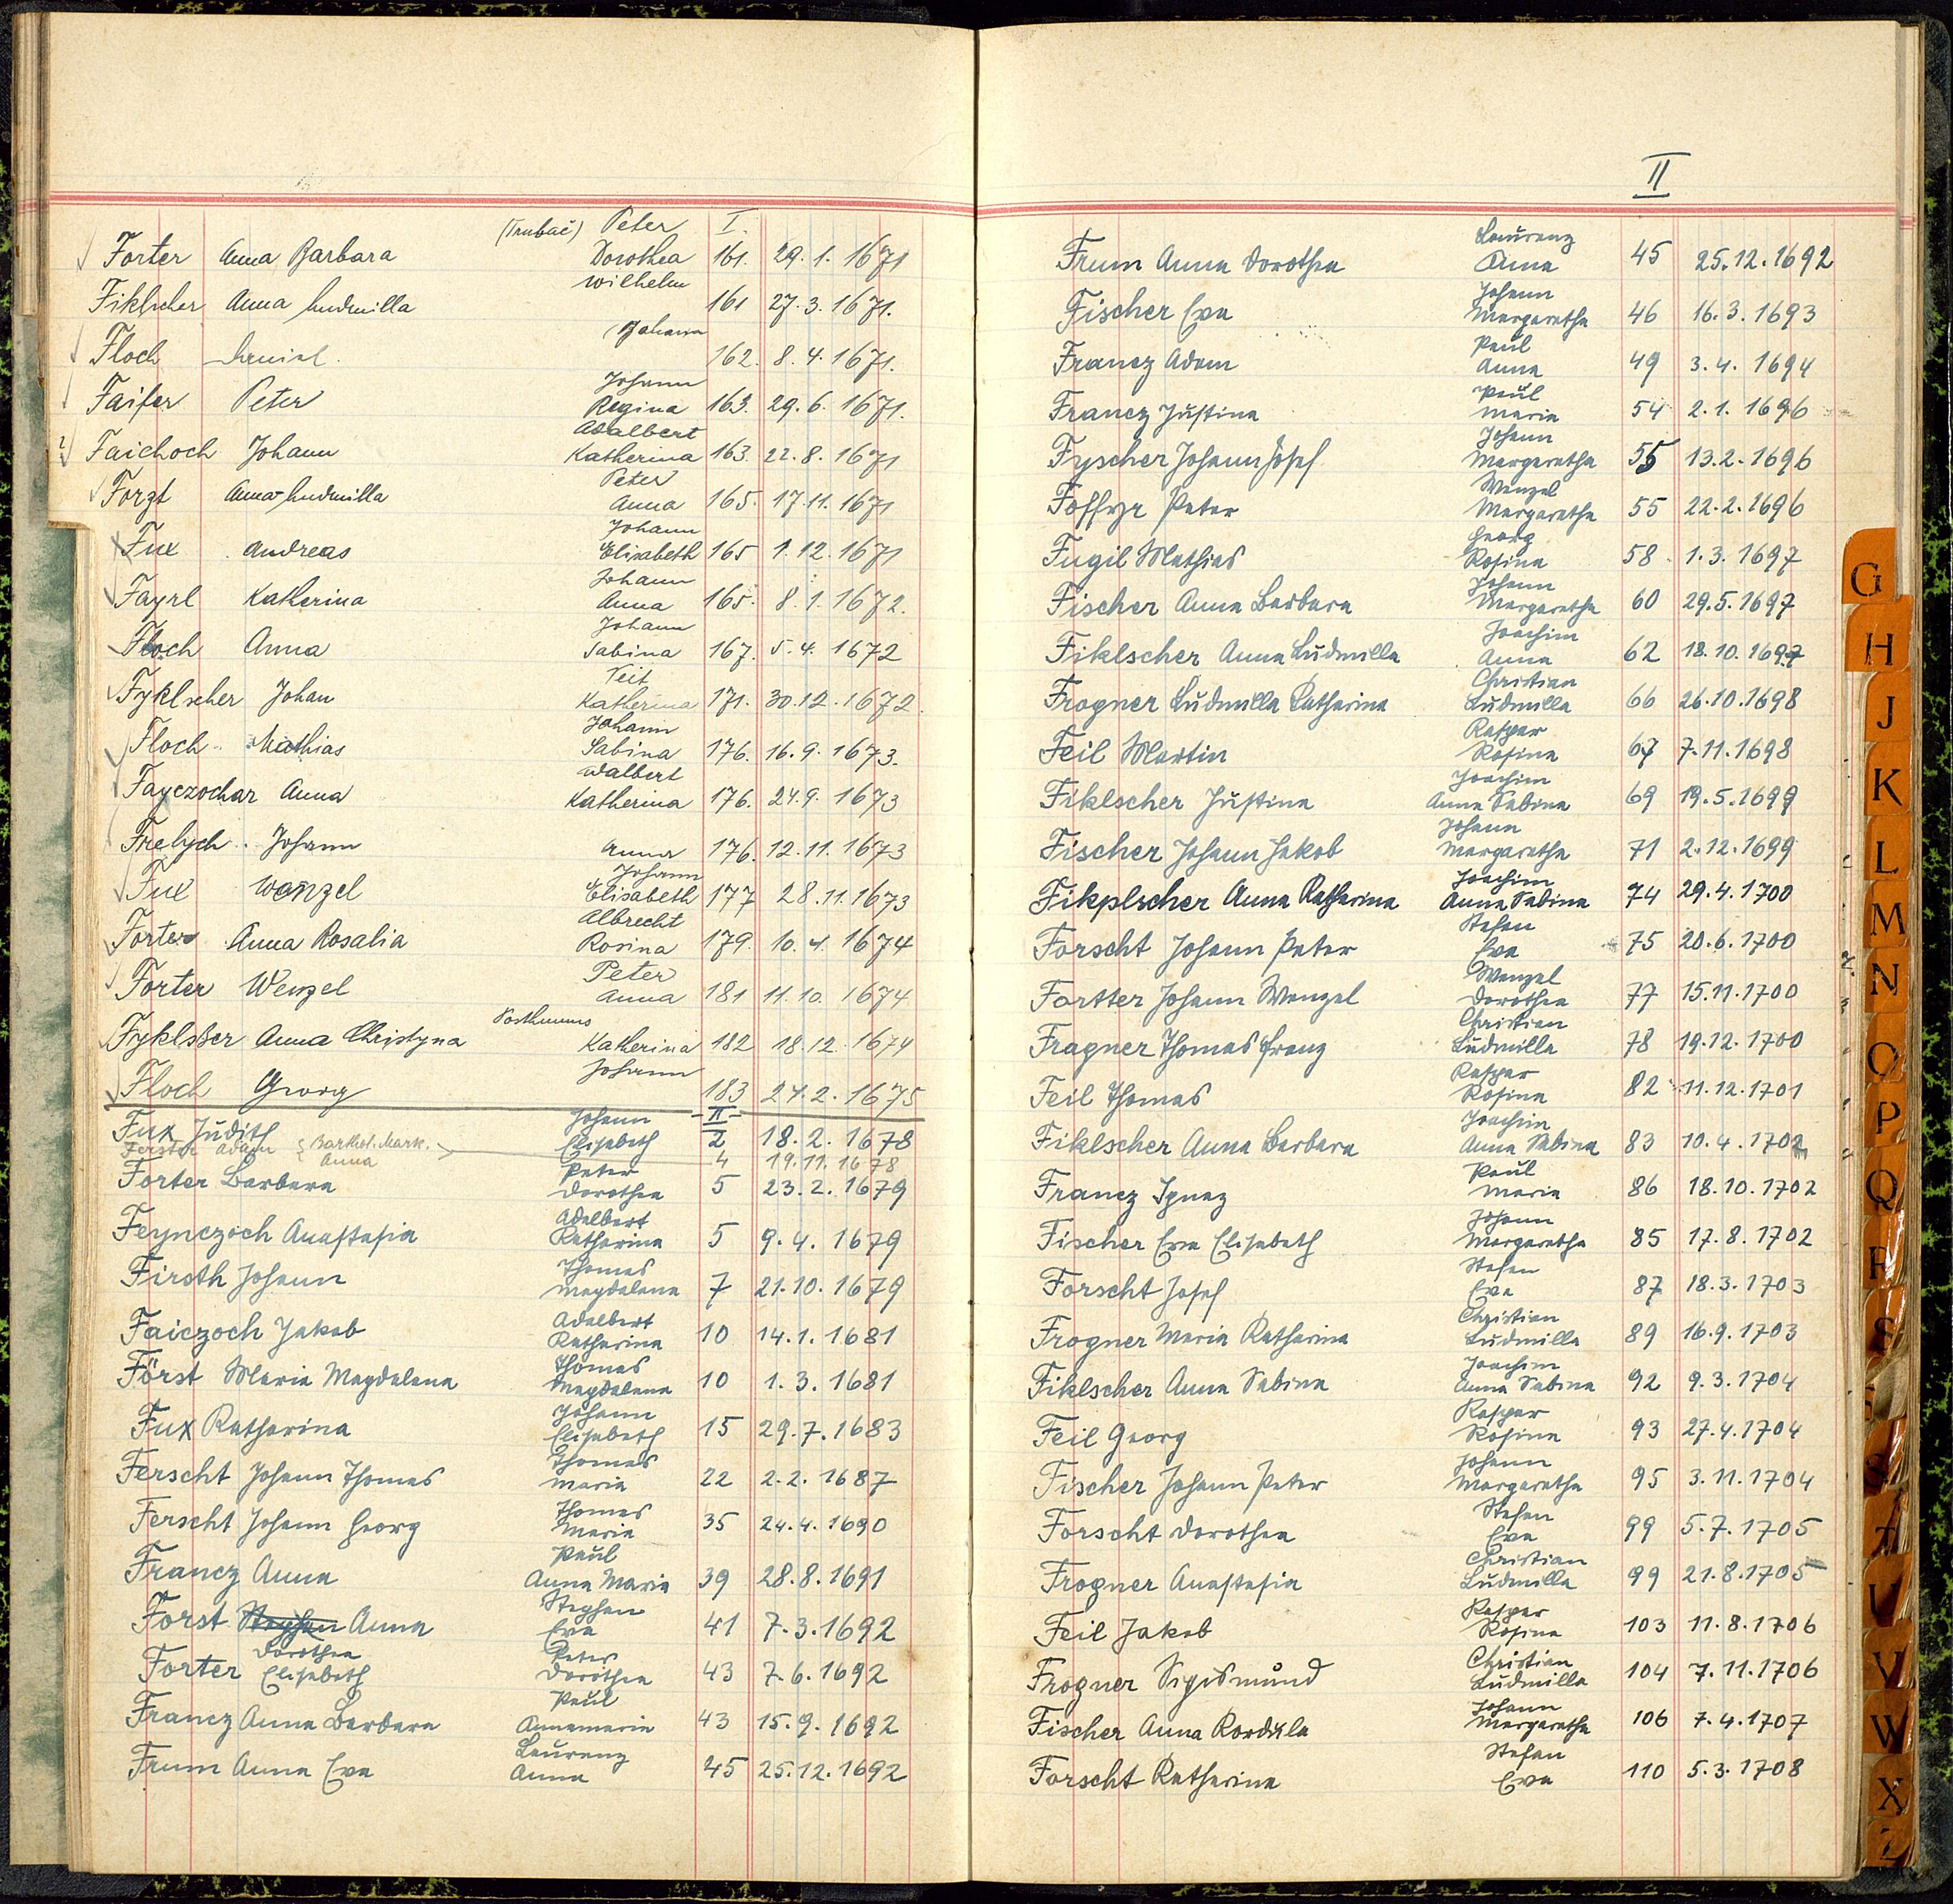 (Trubač) Peter I.
Forter Anna Barbara Dorothea 161. 29. 1. 1671
Wilhelm
Fiklscher Anna Ludmilla 161 27. 3. 1671.
Johann
Floch Daniel. 162. 8. 4. 1671.
Johann
Faifer Peter Regina 163. 29. 6. 1671.
Adalbert
Faichoch Johann Katherina 163. 22. 8. 1671
Peter
Forzt Anna Ludmilla Anna 165. 17. 11. 1671
Johann
Fux Andreas Elisabeth 165 1. 12. 1671
Johann
Fayrl Katherina Anna 165. 8. 1. 1672.
Johann
Floch Anna Sabina 167. 5. 4. 1672
Veit
Fyklscher Johan Katherina 171. 30. 12. 1672.
Johann
Floch Mathias Sabina 176. 16. 9. 1673.
Adalbert
Fayczochar Anna Katherina 176. 24. 9. 1673
Frelych Johann Anna 176. 12. 11. 1673
Johann
Fux Wenzel Elisabeth 177 28. 11. 1673
Albrecht
Forter Anna Rosalia Rosina 179. 10. 4. 1674
Peter
Forter Wenzel Anna 181 11. 10. 1674
Posthumus
Fyklsßer Anna Christyna Katherina 182 18. 12. 1674
Johann
Floch Georg 183 24. 2. 1675
Johann II
Fux Judith Elisabeth 2 18. 2. 1678
Ferster Adam { Barthol. Mark. Anna 4 19. 11. 1678
Peter
Forter Barbara Dorothea 5 23. 2. 1679
Adalbert
Feynczoch Anastasia Katharina 5 9. 4. 1679
Thomas
Firsth Johann Magdalena 7 21. 10. 1679
Adalbert
Faiczoch Jakob Katharina 10 14. 1. 1681
Thomas
Först Maria Magdalena Magdalena 10 1. 3. 1681
Johann
Fux Katharina Elisabeth 15 29. 7. 1683
Thomas
Ferscht Johann Thomas Maria 22 2. 2. 1687
Thomas
Ferscht Johann Georg Maria 35 24. 4. 1690
Paul
Francz Anna Anna Maria 39 28. 8. 1691
Stephan
Forst Stephan Anna Eva 41 7. 3. 1692
Dorothea Peter
Forter Elisabeth Dorothea 43 7. 6. 1692
Paul
Francz Anna Barbara Annamaria 43 15. 9. 1692
Laurenz
Frum Anna Eva Anna 45 25. 12. 1692
II
Laurenz
Frum Anna Dorothea Anna 45 25. 12. 1692
Johann
Fischer Eva Margaretha 46 16. 3. 1693
Paul
Francz Adam Anna 49 3. 4. 1694
Paul
Francz Justina Maria 54 2. 1. 1696
Johann
Fyscher Johann Josef Margaretha 55 13. 2. 1696
Wenzel
Foffyr Peter Margaretha 55 22. 2. 1696
Georg
Fugil Mathias Rosina 58 1. 3. 1697
Johann
Fischer Anna Barbara Margaretha 60 29. 5. 1697
Joachim
Fiklscher Anna Ludmilla Anna 62 18. 10. 1697
Christian
Frogner Ludmilla Katharina Ludmilla 66 26. 10. 1698
Kaspar
Feil Martin Rosina 67 7. 11. 1698
Joachim
Fiklscher Justina Anna Sabina 69 19. 5. 1699
Johann
Fischer Johann Jakob Margaretha 71 2. 12. 1699
Joachim
Fikplscher Anna Katharina Anna Sabina 74 29. 4. 1700
Stefan
Forscht Johann Peter Eva 75 20. 6. 1700
Wenzel
Fortter Johann Wenzel Dorothea 77 15. 11. 1700
Christian
Fragner Thomas Franz Ludmilla 78 19. 12. 1700
Kaspar
Feil Thomas Rosina 82 11. 12. 1701
Joachim
Fiklscher Anna Barbara Anna Sabina 83 10. 4. 1702
Paul
Francz Ignaz Maria 86 18. 10. 1702
Johann
Fischer Eva Elisabeth Margaretha 85 17. 8. 1702
Stefan
Forscht Josef Eva 87 18. 3. 1703
Christian
Frogner Maria Katharina Ludmilla 89 16. 9. 1703
Joachim
Fiklscher Anna Sabina Anna Sabina 92 9. 3. 1704
Kaspar
Feil Georg Rosina 93 27. 4. 1704
Johann
Fischer Johann Peter Margaretha 95 3. 11. 1704
Stefan
Forscht Dorothea Eva 99 5. 7. 1705
Christian
Frogner Anastasia Ludmilla 99 21. 8. 1705
Kaspar
Feil Jakob Rosina 103 11. 8. 1706
Christian
Frogner Sigismund Ludmilla 104 7. 11. 1706
Johann
Fischer Anna Kordula Margaretha 106 7. 4. 1707
Stefan
Forscht Katharina Eva 110 5. 3. 1708
G
H
J
K
L
M
N
O
P
Q
R
S
T
U
V
W
X
Z